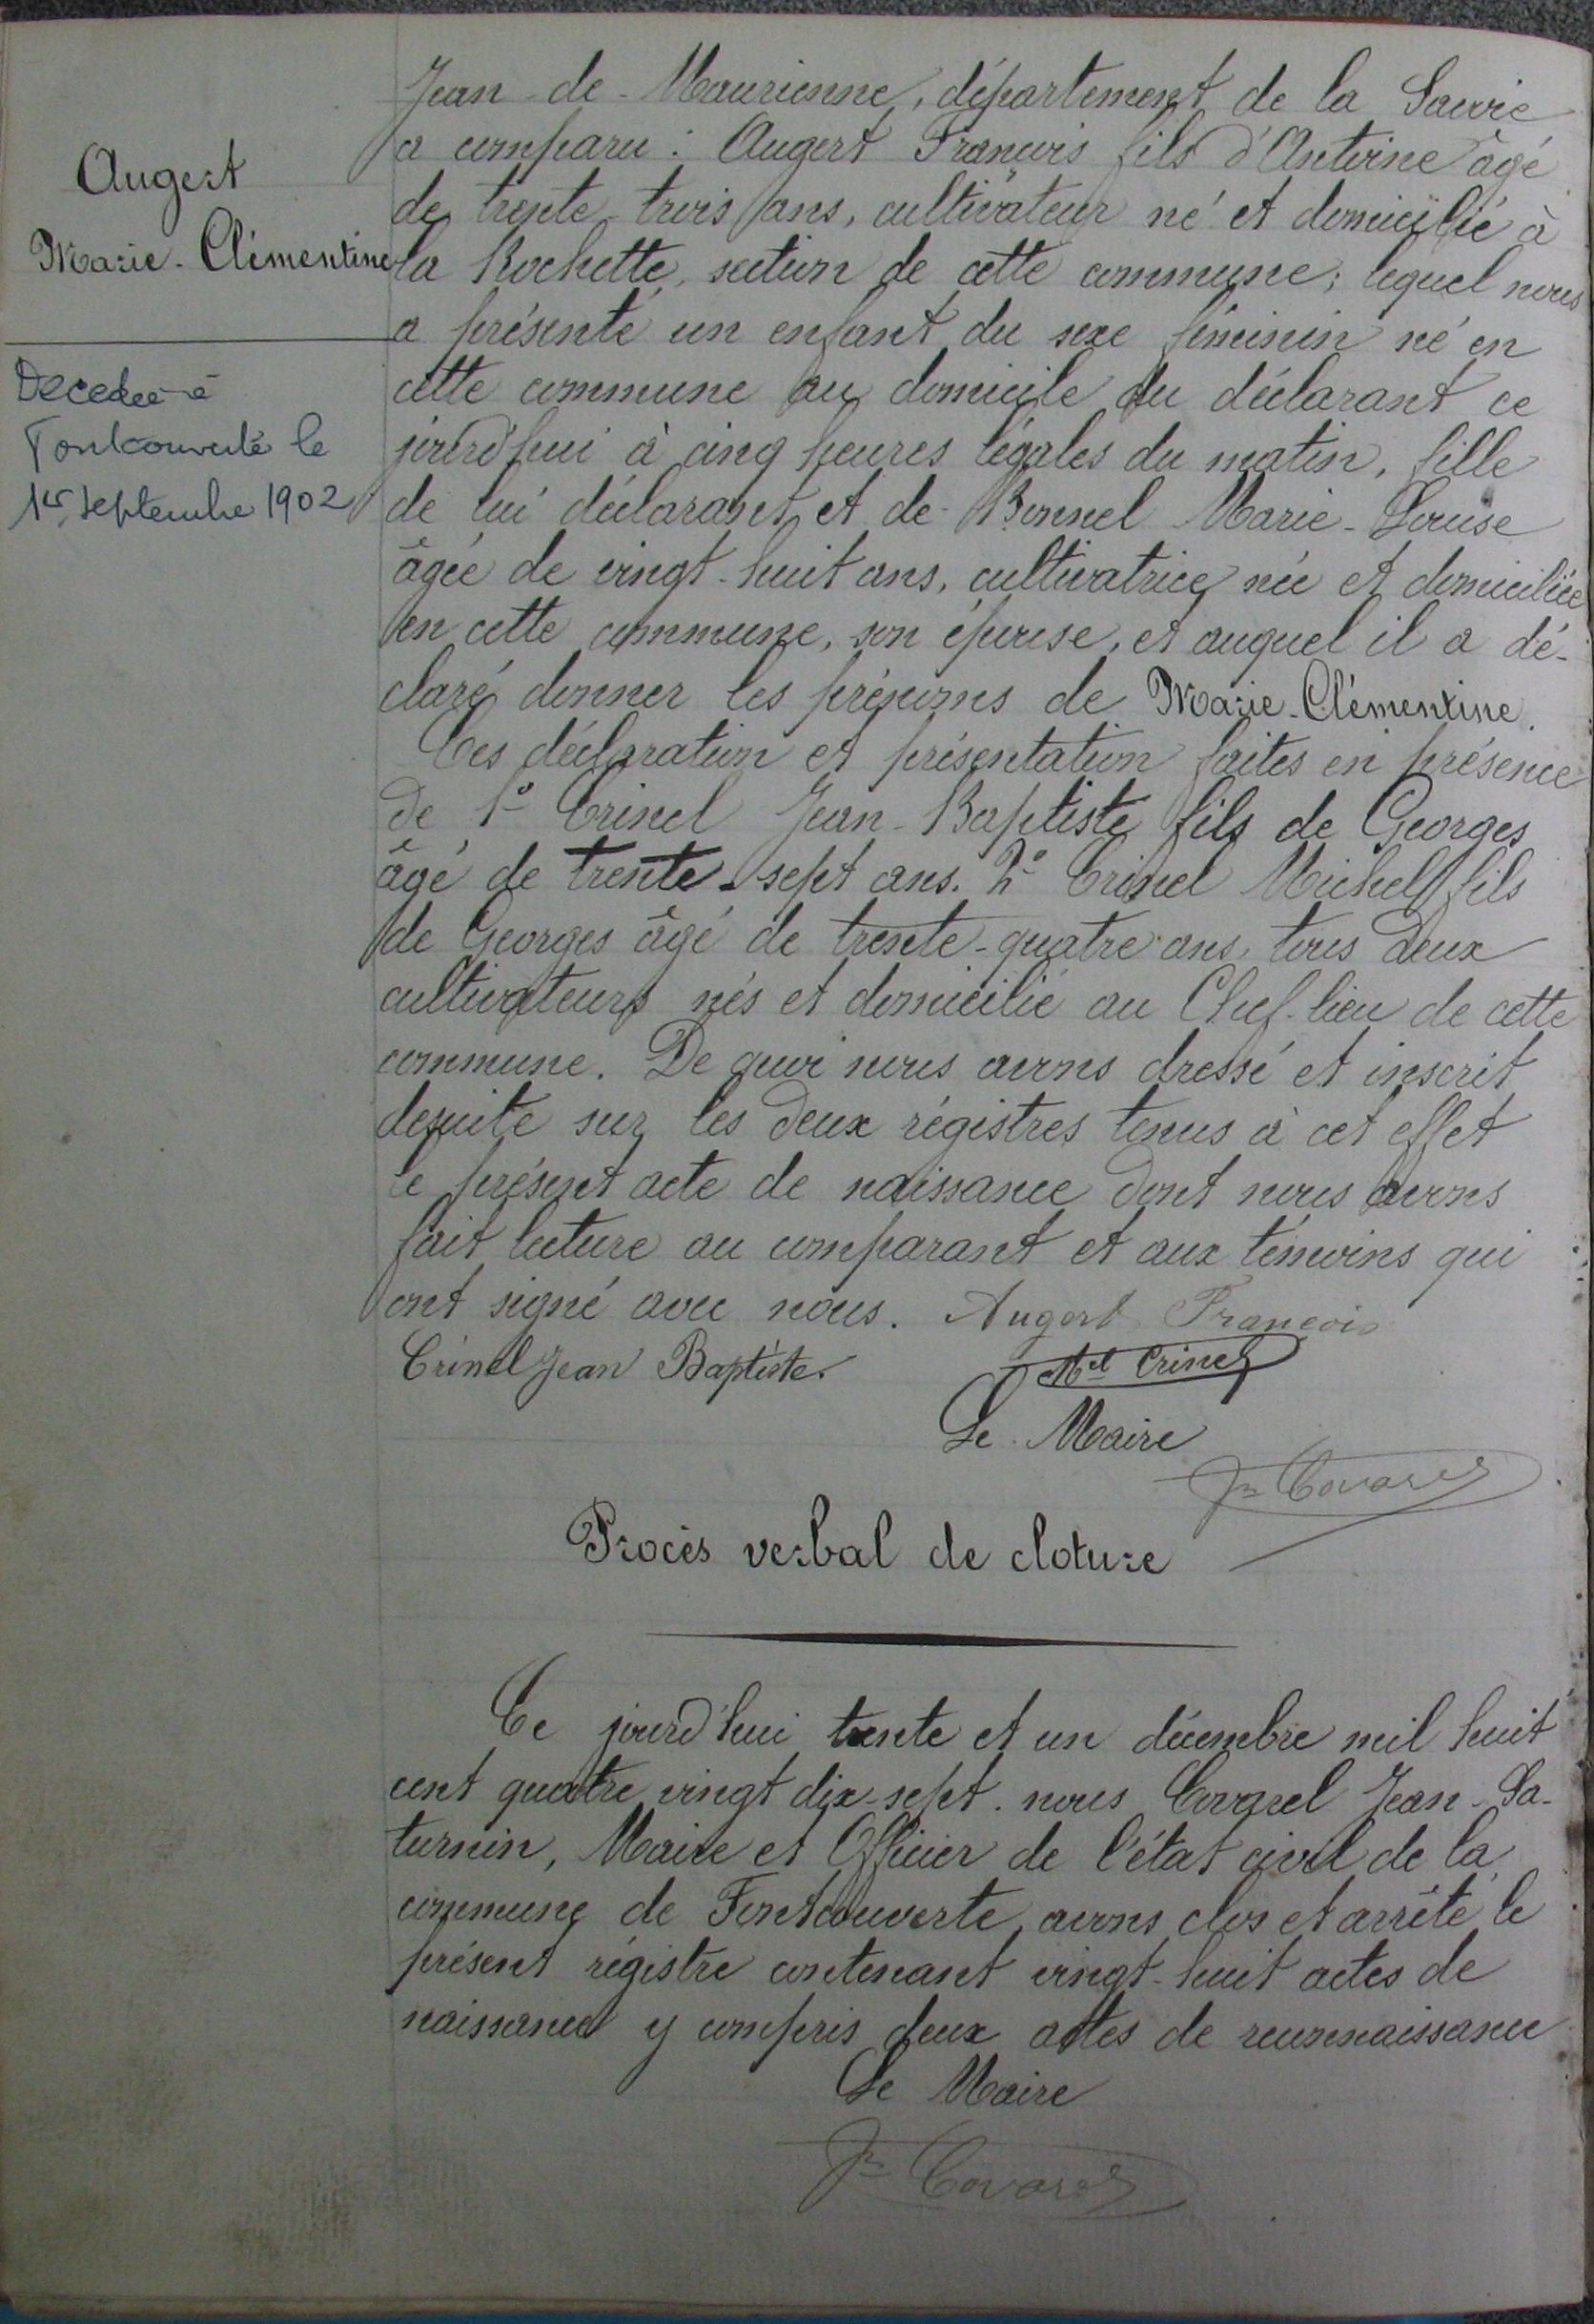 Augert
Marie-Clémentine
Decedée à
Fontcouverte le
1er septembre 1902
Jean-de-Maurienne, département de la Savoie
a comparu : Augert François fils d'Antoine âgé
de trente-trois ans, cultivateur né et domicilié à
la Rochette, section de cette commune ; lequel nous
a présenté un enfant du sexe féminin né en
cette commune au domicile du déclarant ce
jourd'hui à cinq heures légales du matin, fille
de lui déclarant et de Bonnel Marie-Louise
âgée de vingt-huit ans, cultivatrice, née et domiciliée
en cette commune, son épouse, et auquel il a dé-
claré donner les prénoms de Marie-Clémentine.
Ces déclaration et présentation faites en présence
de 1° Crinel Jean-Baptiste fils de Georges
âgé de trente-sept ans. 2° Crinel Michel fils
de Georges âgé de trente-quatre ans, tous deux
cultivateurs nés et domicilié au Chef-lieu de cette
commune. De quoi nous avons dressé et inscrit
desuite sur les deux régistres tenus à cet effet
le présent acte de naissance dont nous avons
fait lecture au comparant et aux témoins qui
ont signé avec nous. Augert François
Crinel Jean Baptiste. Mel Crinel
Le Maire
Jn Covarel
Procès verbal de cloture
Ce jourd'hui trente et un décembre mil huit
cent quatre vingt dix-sept. nous Covarel Jean-Sa-
turnin, Maire et Officier de l'état civil de la
commune de Fontcouverte, avons clos et arrêté le
présent régistre contenant vingt-huit actes de
naissance y compris deux actes de reconnaissance
Le Maire
Jn Covarel